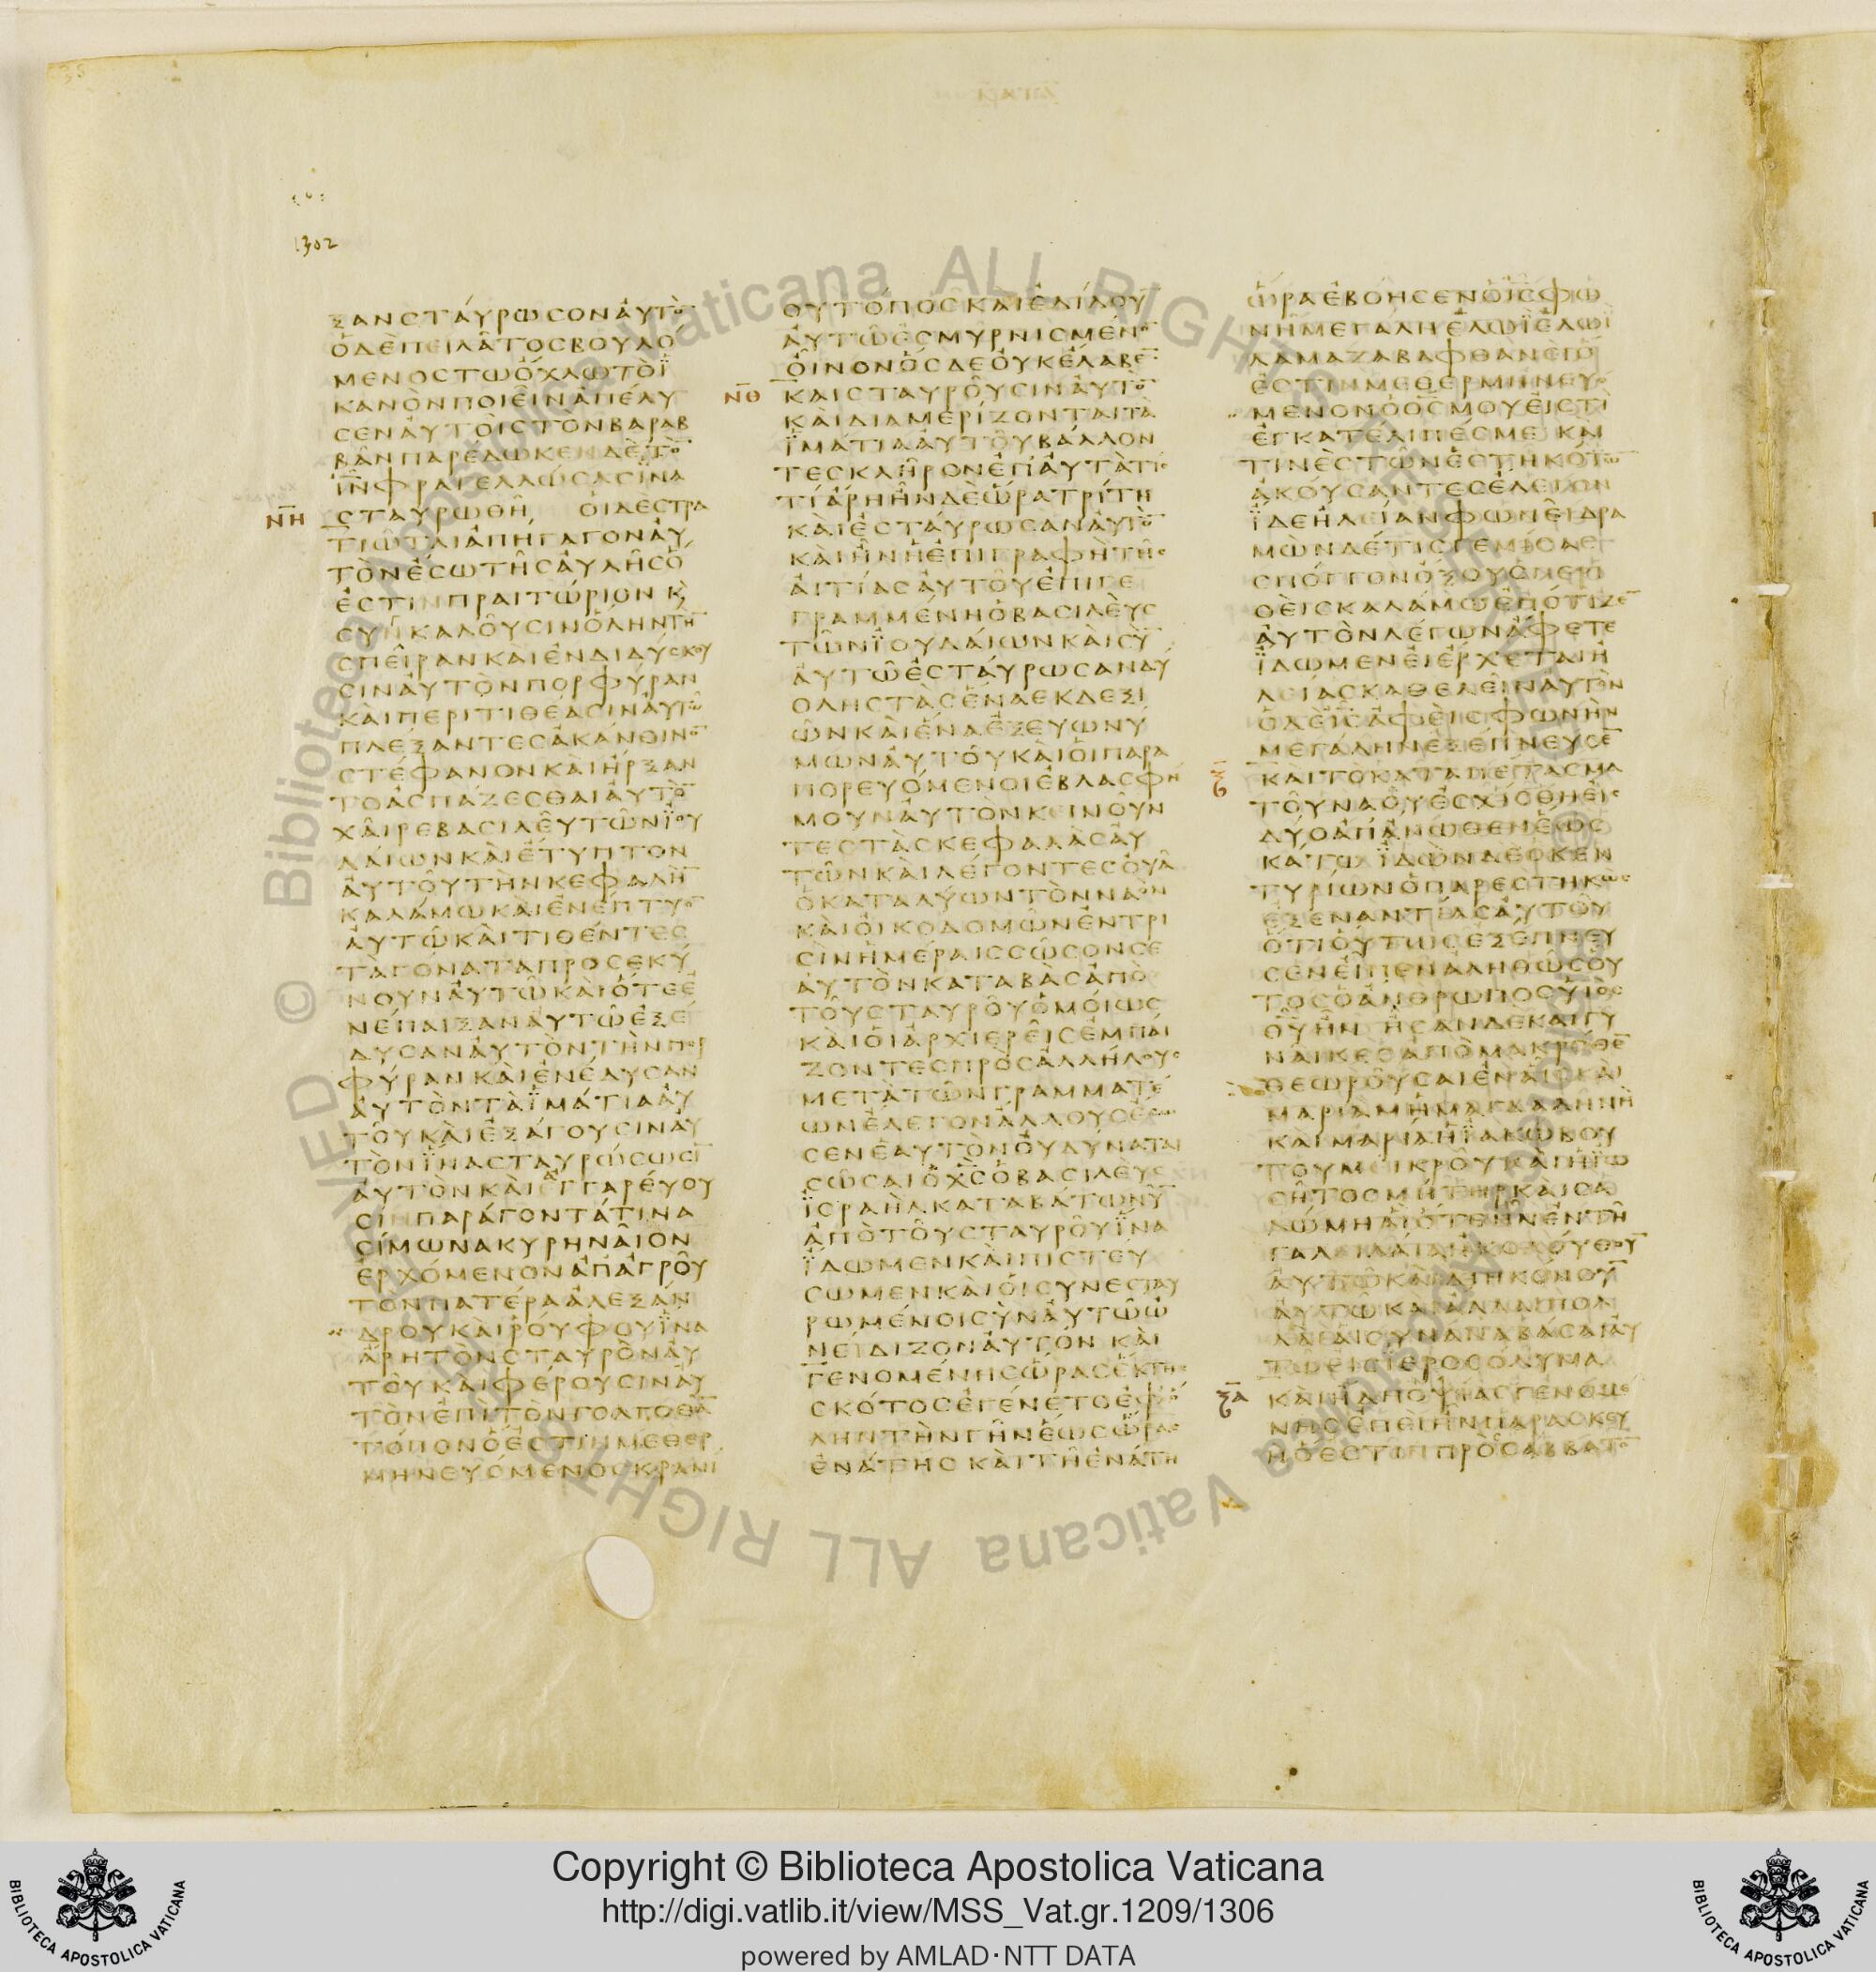 1302
ΞΑΝΣΤΑΥΡΩΣΟΝΑΥΤΟ̅
ΟΔΕΠΕΙΛΑΤΟΣΒΟΥΛΟ
ΜΕΝΟΣΤΩΟΧΛΩΤΟΪ
ΚΑΝΟΝΠΟΙΕΙΝΑΠΕΛΥ
ΣΕΝΑΥΤΟΙΣΤΟΝΒΑΡΑΒ
ΒΑΝΠΑΡΕΔΩΚΕΝΔΕΤΟ̅
Ι̅Ν̅ΦΡΑΓΕΛΛΩΣΑΣΪΝΑ
Ν̅Η ΣΤΑΥΡΩΘΗ ΟΙΔΕΣΤΡΑ
ΤΙΩΤΑΙΑΠΗΓΑΓΟΝΑΥ
ΤΟΝΕΣΩΤΗΣΑΥΛΗΣΟ
ΕΣΤΙΝΠΡΑΙΤΩΡΙΟΝΚ
ΣΥΝΚΑΛΟΥΣΙΝΟΛΗΝΤΗ̅
ΣΠΕΙΡΑΝΚΑΙΕΝΔΙΔΥΣΚΟΥ
ΣΙΝΑΥΤΟΝΠΟΡΦΥΡΑΝ
ΚΑΙΠΕΡΙΤΙΘΕΑΣΙΝΑΥΤΩ
ΠΛΕΞΑΝΤΕΣΑΚΑΝΘΙΝΟ̅
ΣΤΕΦΑΝΟΝΚΑΙΗΡΞΑΝ
ΤΟΑΣΠΑΖΕΣΘΑΙΑΥΤΟ̅
ΧΑΙΡΕΒΑΣΙΛΕΥΤΩΝΪΟΥ
ΔΑΙΩΝΚΑΙΕΤΥΠΤΟΝ
ΑΥΤΟΥΤΗΝΚΕΦΑΛΗ̅
ΚΑΛΑΜΩΚΑΙΕΝΕΠΤΥΟ̅
ΑΥΤΩΚΑΙΤΙΘΕΝΤΕΣ
ΤΑΓΟΝΑΤΑΠΡΟΣΕΚΥ
ΝΟΥΝΑΥΤΩΚΑΙΟΤΕΕ
ΝΕΠΑΙΞΑΝΑΥΤΩΕΞΕ
ΔΥΣΑΝΑΥΤΟΝΤΗΝΠΟΡ
ΦΥΡΑΝΚΑΙΕΝΕΔΥΣΑΝ
ΑΥΤΟΝΤΑΪΜΑΤΙΑΑΥ
ΤΟΥΚΑΙΕΞΑΓΟΥΣΙΝΑΥ
ΤΟΝΪΝΑΣΤΑΥΡΩΣΩΣΙ̅
ΑΥΤΟΝΚΑΙΑΓΓΑΡΕΥΟΥ
ΣΙΝΠΑΡΑΓΟΝΤΑΤΙΝΑ
ΣΙΜΩΝΑΚΥΡΗΝΑΙΟΝ
ΕΡΧΟΜΕΝΟΝΑΠΑΓΡΟΥ
ΤΟΝΠΑΤΕΡΑΑΛΕΞΑΝ
ΔΡΟΥΚΑΙΡΟΥΦΟΥΪΝΑ
ΑΡΗΤΟΝΣΤΑΥΡΟΝΑΥ
ΤΟΥΚΑΙΦΕΡΟΥΣΙΝΑΥ
ΤΟΝΕΠΙΤΟΝΓΟΛΓΟΘΑ̅
ΤΟΠΟΝΟΕΣΤΙΝΜΕΘΕΡ
ΜΗΝΕΥΟΜΕΝΟΣΚΡΑΝΙ
ΟΥΤΟΠΟΣΚΑΙΕΔΙΔΟΥ̅
ΑΥΤΩΕΣΜΥΡΝΙΣΜΕΝΟ̅
ΟΙΝΟΝΟΣΔΕΟΥΚΕΛΑΒΕ̅
Ν̅Θ ΚΑΙΣΤΑΥΡΟΥΣΙΝΑΥΤΟ̅
ΚΑΙΔΙΑΜΕΡΙΖΟΝΤΑΙΤΑ
ΪΜΑΤΙΑΑΥΤΟΥΒΑΛΛΟΝ
ΤΕΣΚΛΗΡΟΝΕΠΑΥΤΑΤΙΣ
ΤΙΑΡΗΗΝΔΕΩΡΑΤΡΙΤΗ
ΚΑΙΕΣΤΑΥΡΩΣΑΝΑΥΤΟ̅
ΚΑΙΗΝΗΕΠΙΓΡΑΦΗΤΗΣ
ΑΙΤΙΑΣΑΥΤΟΥΕΠΙΓΕ
ΓΡΑΜΜΕΝΗΟΒΑΣΙΛΕΥΣ
ΤΩΝΪΟΥΔΑΙΩΝΚΑΙΣΥ̅
ΑΥΤΩΕΣΤΑΥΡΩΣΑΝΔΥ
ΟΛΗΣΤΑΣΕΝΑΕΚΔΕΞΙ
ΩΝΚΑΙΕΝΑΕΞΕΥΩΝΥ
ΜΩΝΑΥΤΟΥΚΑΙΟΙΠΑΡΑ
ΠΟΡΕΥΟΜΕΝΟΙΕΒΛΑΣΦΗ
ΜΟΥΝΑΥΤΟΝΚΕΙΝΟΥΝ
ΤΕΣΤΑΣΚΕΦΑΛΑΣΑΥ
ΤΩΝΚΑΙΛΕΓΟΝΤΕΣΟΥΑ
ΟΚΑΤΑΛΥΩΝΤΟΝΝΑΟΝ
ΚΑΙΟΙΚΟΔΟΜΩΝΕΝΤΡΙ
ΣΙΝΗΜΕΡΑΙΣΣΩΣΟΝΣΕ
ΑΥΤΟΝΚΑΤΑΒΑΣΑΠΟ
ΤΟΥΣΤΑΥΡΟΥΟΜΟΙΩΣ
ΚΑΙΟΙΑΡΧΙΕΡΕΙΣΕΜΠΑΙ
ΖΟΝΤΕΣΠΡΟΣΑΛΛΗΛΟΥΣ
ΜΕΤΑΤΩΝΓΡΑΜΜΑΤΕ
ΩΝΕΛΕΓΟΝΑΛΛΟΥΣΕΣΩ
ΣΕΝΕΑΥΤΟΝΟΥΔΥΝΑΤΑΙ
ΣΩΣΑΙΟΧ̅Σ̅ΟΒΑΣΙΛΕΥΣ
ΪΣΡΑΗΛΚΑΤΑΒΑΤΩΝΥ̅
ΑΠΟΤΟΥΣΤΑΥΡΟΥΪΝΑ
ΪΔΩΜΕΝΚΑΙΠΙΣΤΕΥ
ΣΩΜΕΝΚΑΙΟΙΣΥΝΕΣΤΑΥ
ΡΩΜΕΝΟΙΣΥΝΑΥΤΩΩ
ΝΕΙΔΙΖΟΝΑΥΤΟΝ ΚΑΙ
ΓΕΝΟΜΕΝΗΣΩΡΑΣΕΚΤΗΣ
ΣΚΟΤΟΣΕΓΕΝΕΤΟΕΦΟ
ΛΗΝΤΗΝΓΗΝΕΩΣΩΡΑΣ
ΕΝΑΤΗΣ ΚΑΙΤΗΕΝΑΤΗ
ΩΡΑΕΒΟΗΣΕΝΟΙ̅Σ̅ΦΩ
ΝΗΜΕΓΑΛΗΕΛΩΪΕΛΩΪ
ΛΑΜΑΖΑΒΑΦΘΑΝΕΙΟ
ΕΣΤΙΝΜΕΘΕΡΜΗΝΕΥΟ
ΜΕΝΟΝΟΘ̅Σ̅ΜΟΥΕΙΣΤΙ
ΕΓΚΑΤΕΛΙΠΕΣΜΕ ΚΑΙ
ΤΙΝΕΣΤΩΝΕΣΤΗΚΟΤΩ̅
ΑΚΟΥΣΑΝΤΕΣΕΛΕΓΟΝ
ΪΔΕΗΛΕΙΑΝΦΩΝΕΙΔΡΑ
ΜΩΝΔΕΤΙΣΓΕΜΙΣΑΣ
ΣΠΟΓΓΟΝΟΞΟΥΣΠΕΡΙ
ΘΕΙΣΚΑΛΑΜΩΕΠΟΤΙΖΕ̅
ΑΥΤΟΝΛΕΓΩΝΑΦΕΤΕ
ΪΔΩΜΕΝΕΙΕΡΧΕΤΑΙΗ
ΛΕΙΑΣΚΑΘΕΛΕΙΝΑΥΤΟΝ
ΟΔΕΙ̅Σ̅ΑΦΕΙΣΦΩΝΗΝ
ΜΕΓΑΛΗΝΕΞΕΠΝΕΥΣΕ̅
Ξ̅ ΚΑΙΤΟΚΑΤΑΠΕΤΑΣΜΑ
ΤΟΥΝΑΟΥΕΣΧΙΣΘΗΕΙΣ
ΔΥΟΑΠΑΝΩΘΕΝΕΩΣ
ΚΑΤΩ ΪΔΩΝΔΕΟΚΕΝ
ΤΥΡΙΩΝΟΠΑΡΕΣΤΗΚΩΣ
ΕΞΕΝΑΝΤΙΑΣΑΥΤΟΥ
ΟΤΙΟΥΤΩΣΕΞΕΠΝΕΥ
ΣΕΝΕΙΠΕΝΑΛΗΘΩΣΟΥ
ΤΟΣΟΑΝΘΡΩΠΟΣΥΙΟΣ
Θ̅Υ̅ΗΝ ΗΣΑΝΔΕΚΑΙΓΥ
ΝΑΙΚΕΣΑΠΟΜΑΚΡΟΘΕ̅
ΘΕΩΡΟΥΣΑΙΕΝΑΙΣΚΑΙ
ΜΑΡΙΑΜΗΜΑΓΔΑΛΗΝΗ
ΚΑΙΜΑΡΙΑΗΪΑΚΩΒΟΥ
ΤΟΥΜΕΙΚΡΟΥΚΑΙΗΪΩ
ΣΗΤΟΣΜΗΤΗΡΚΑΙΣΑ
ΛΩΜΗΑΙΟΤΕΗΝΕΝΤΗ
ΓΑΛΕΙΛΑΙΑΗΚΟΛΟΥΘΟΥ̅
ΑΥΤΩΚΑΙΔΙΗΚΟΝΟΥ̅
ΑΥΤΩΚΑΙΑΛΛΑΙΠΟΛ
ΛΑΙΑΙΣΥΝΑΝΑΒΑΣΑΙΑΥ
ΤΩΕΙΣΪΕΡΟΣΟΛΥΜΑ
Ξ̅Α ΚΑΙΗΔΗΟΨΙΑΣΓΕΝΟΜΕ
ΝΗΣΕΠΕΙΗΝΠΑΡΑΣΚΕΥ
ΗΟΕΣΤΙΝΠΡΟΣΣΑΒΒΑΤΟ̅
© Biblioteca Apostolica Vaticana ALL RIGHTS RESERVED
Copyright © Biblioteca Apostolica Vaticana
http://digi.vatlib.it/view/MSS_Vat.gr.1209/1306
powered by AMLAD·NTT DATA
BIBLIOTECA APOSTOLICA VATICANA
BIBLIOTECA APOSTOLICA VATICANA